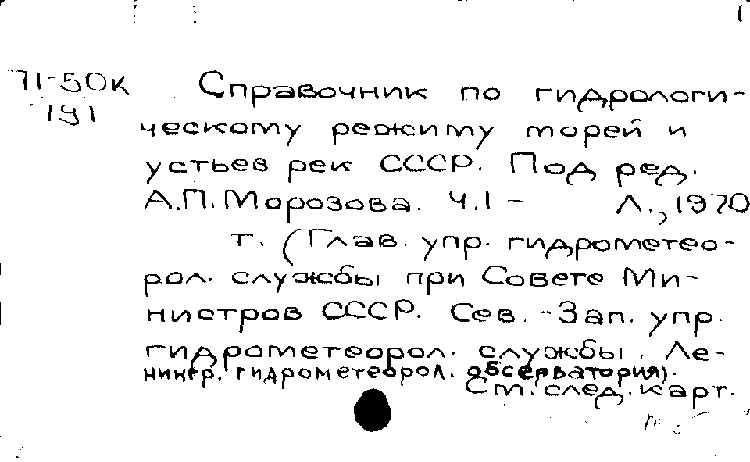 71-50к Справочник по гидрологи-
191 ческому режиму морей и
устьев рек СССР. Под ред.
А.П. Морозова. Ч.1 – Л., 1970
т. (Глав. упр. гидрометео-
рол. службы при Совете Ми-
нистров СССР. Сев.-Зап. упр.
гидрометеорол. службы. Ле-
нингр. гидрометеорол. обсерватория).
См. след. карт.